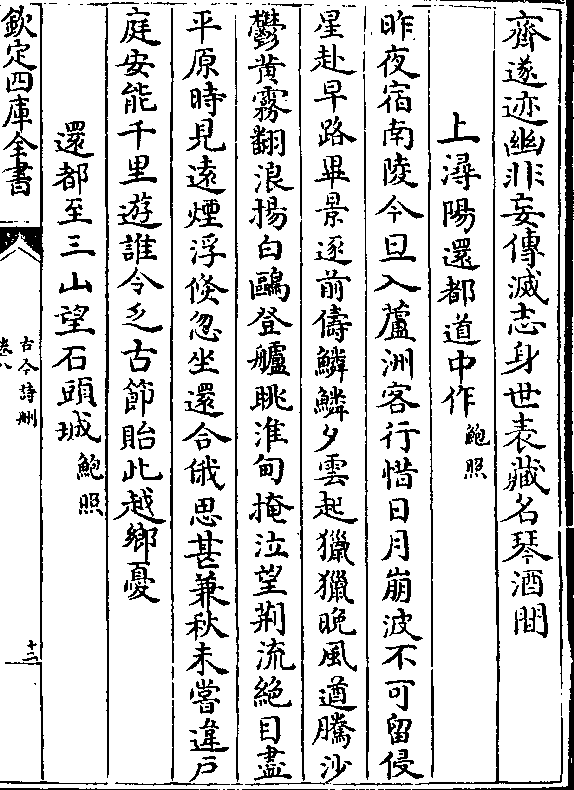 齊遂迹幽非妄傳滅志身世表藏名琴酒間
上潯陽還都道中作 鮑照
昨夜宿南陵今旦入蘆洲客行惜日月崩波不可留侵
星赴早路畢景逐前儔鱗鱗夕雲起獵獵晚風遒騰沙
鬱黄霧翻浪揚白鷗登艫眺淮甸掩泣望荆流絶目盡
平原時見遠煙浮倐忽坐還合俄思甚兼秋未嘗違戸
庭安能千里遊誰令乏古節貽此越鄉憂
還都至三山望石頭城 鮑照
欽定四庫全書
古今詩刪
卷八
十二